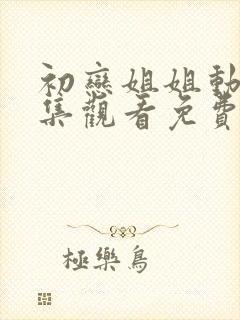 初戀姐姐動
集觀看免費
極樂鳥